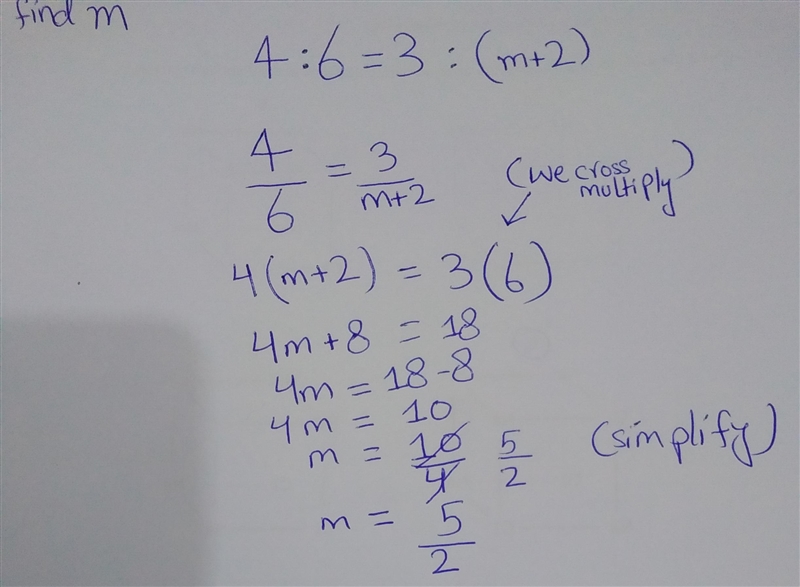 find m
4 : 6 = 3 : (m+2)
4/6 = 3/m+2
(we cross multiply)
4(m+2) = 3(6)
4m + 8 = 18
4m = 18 - 8
4m = 10
m = 10/4 5/2 (simplify)
m = 5/2